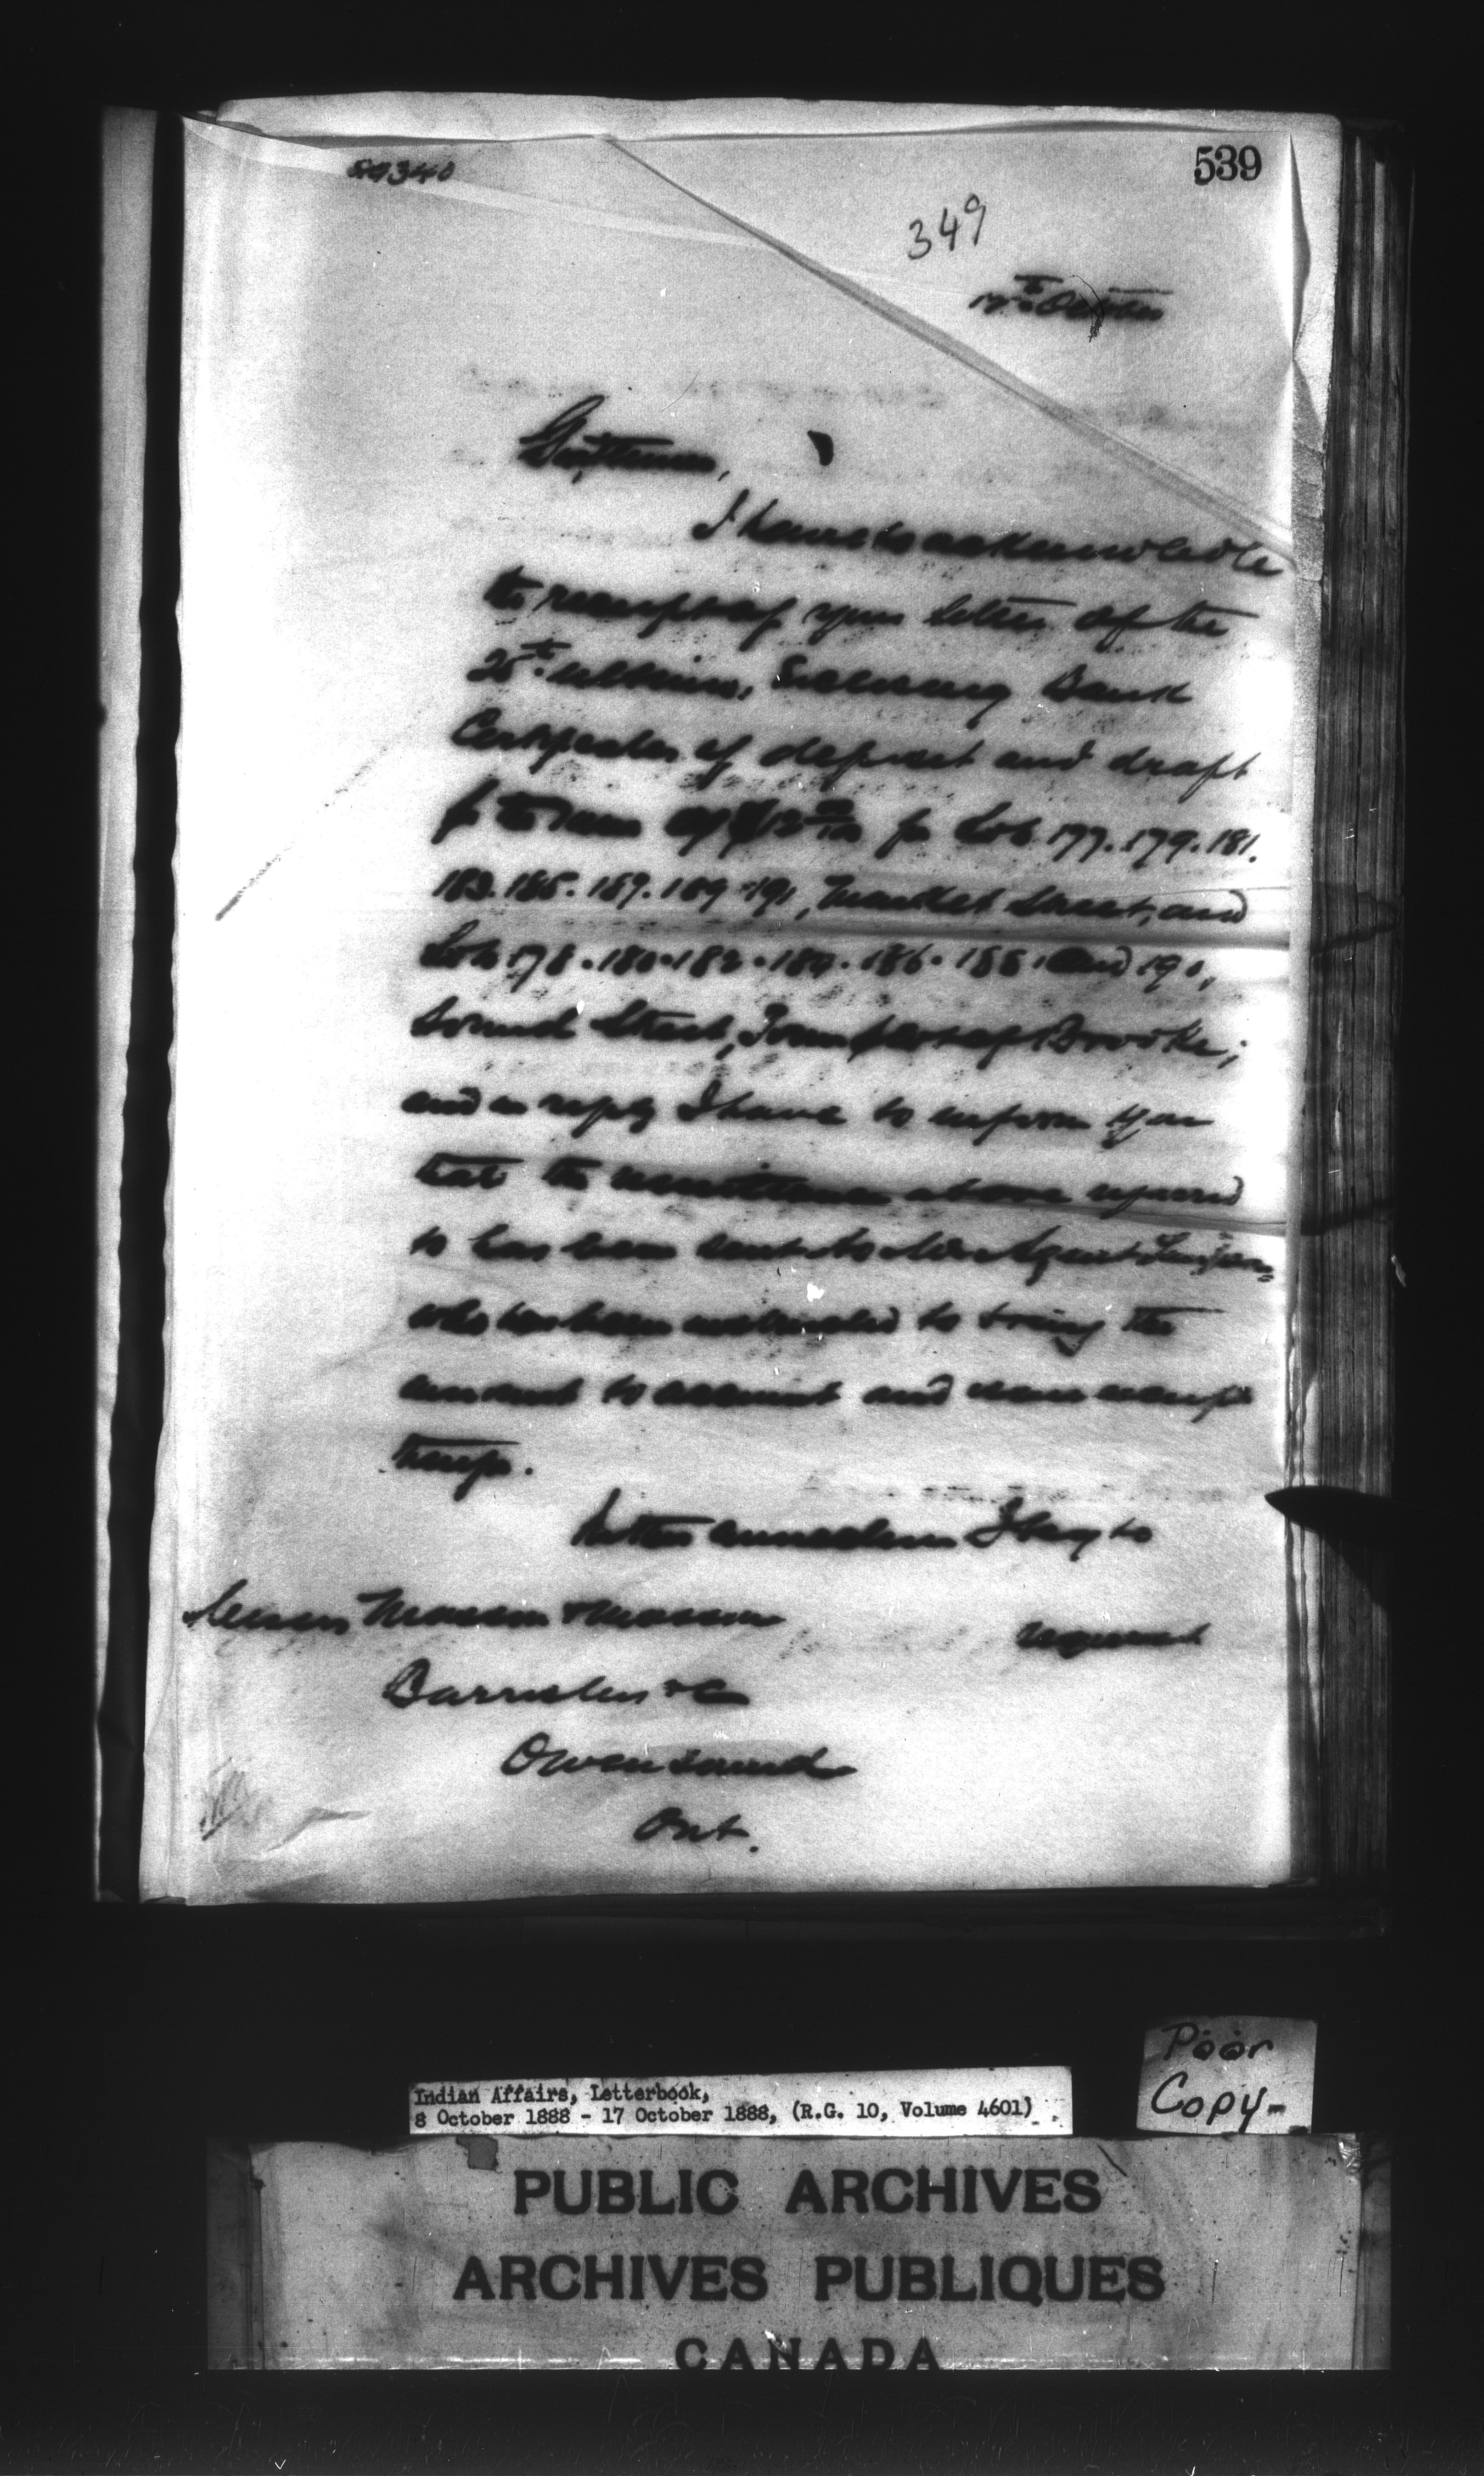 539
349
17th October
Gentlemen,
I have to acknowledge
the receipt of your letter of the
25th ultimo, Enclosing Bank
Certificates of deposit and draft
for the sum of for Lots 177. 179. 181.
183. 185. 187. 189 191, Market Street, and
Lots 178. 180. 182. 184. 186. 188. and 190,
Sound Street, Town plot of Brooke;
and in reply I have to inform you
that the remittance above referred
to has been sent to Mr Agent
who has been instructed to bring the
amount to account and issue receipt
therefor.
In this connection I beg to
request
Messrs Masson & Masson
Barristers &c
Owen Sound
Ont.
Poor
Copy-
Indian Affairs, Letterbook,
8 October 1888 - 17 October 1888, (R.G. 10, Volume 4601)
PUBLIC ARCHIVES
ARCHIVES PUBLIQUES
CANADA